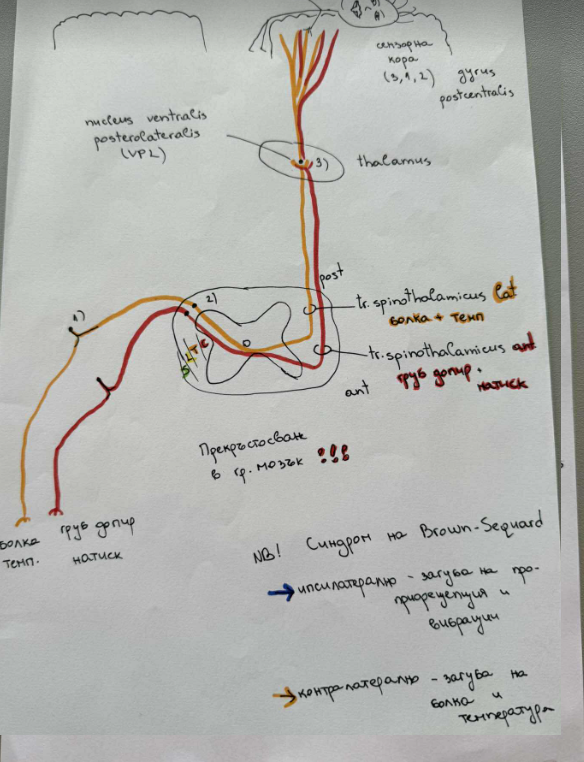 сензорна
кора
(3,1,2) gyrus
postcentralis
nucleus ventralis
posterolateralis
(VPL)
3)
thalamus
post
1)
2)
tr. spinothalamicus lat
болка + темп
S L T C
tr. spinothalamicus ant
груб допир.
натиск
ant
Прекръстосван
в гр. мозък !!!
болка
темп.
груб допир
натиск
NB! Синдром на Brown-Sequard
→ ипсилатерално - загуба на про-
приорецепция и
вибрации
→ контралатерално - загуба на
болка и
температура